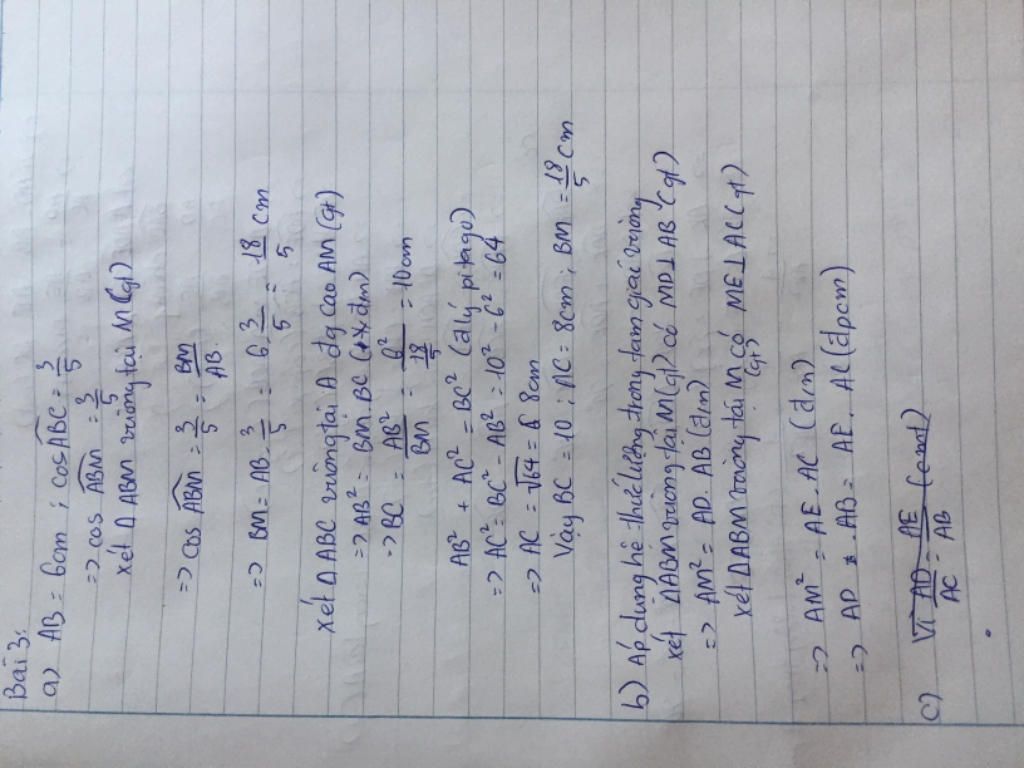 Bài 3:
a) AB = 6cm ; cos ABC = 3/5
=> cos ABM = 3/5
xét Δ ABM vuông tại M (gt)
=> cos ABM = 3/5 = BM/AB
=> BM = AB . 3/5 = 6 . 3/5 = 18/5 cm
xét Δ ABC vuông tại A đg cao AM (gt)
=> AB² = BM . BC (đlm)
=> BC = AB²/BM = 6²/(18/5) = 10cm
AB² + AC² = BC² (đ lý pitago)
=> AC² = BC² - AB² = 10² - 6² = 64
=> AC = √64 = 8cm
Vậy BC = 10 ; AC = 8cm ; BM = 18/5 cm
b) Áp dụng hệ thức lượng trong tam giác vuông
xét ΔABM vuông tại M (gt) có MD⊥AB (gt)
=> AM² = AD . AB (đlm)
xét ΔABM vuông tại M có ME⊥AC (gt)
(gt)
=> AM² = AE . AC (đlm)
=> AD . AB = AE . AC (đpcm)
c) Vì AD/AC = AE/AB (cmt)